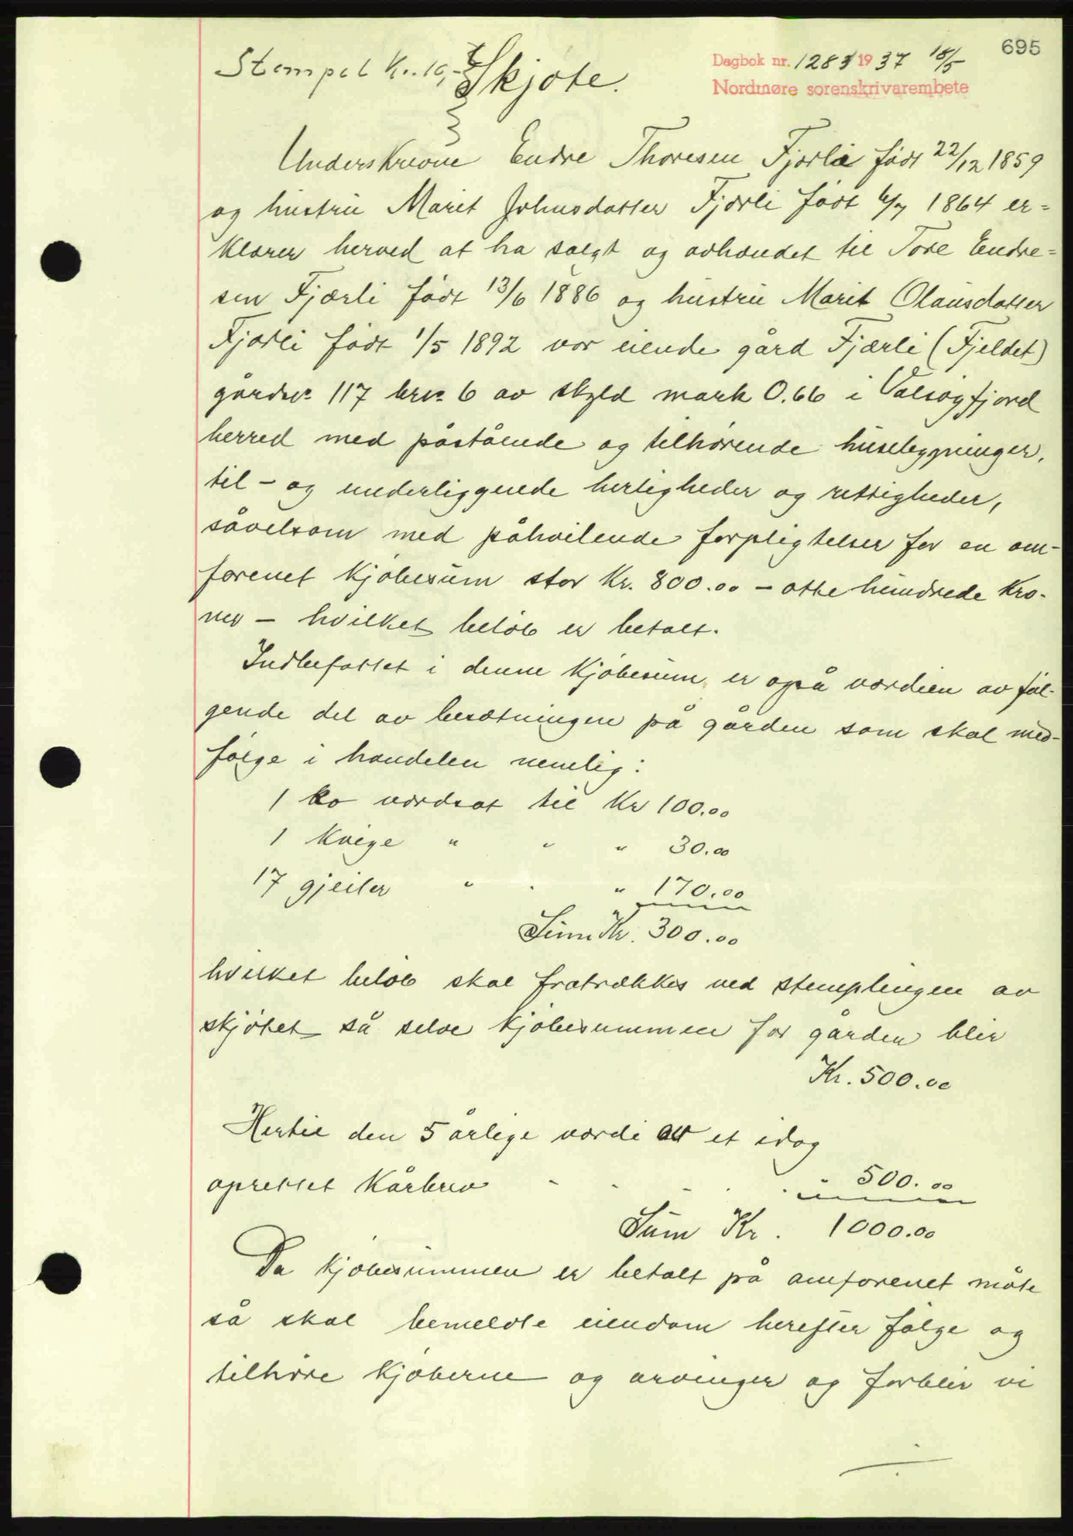 695
Stempel Kr. 10,-
Skjøte.
Dagbok nr. 1283 1937 18/5
Nordmøre sorenskrivarembete
Underskrevne Endre Thoresen Fjærli født 22/12 1859
og hustru Marit Johnsdatter Fjærli født 6/7 1864 er=
klærer herved at ha solgt og avhændet til Tore Endre=
sen Fjærli født 13/6 1886 og hustru Marit Olausdatter
Fjærli født 1/5 1892 vor eiende gård Fjærli (Fjeldet)
gårdsnr. 117 brnr. 6 av skyld mark 0.66 i Valsøyfjord
herred med påstående og tilhørende husebygninger,
til- og underliggende herligheder og rettigheder,
såvelsom med påhvilende forpligtelser for en om-
forenet kjøbesum stor Kr. 800.00 - otte hundrede Kro-
ner - hvilket beløb er betalt.
Indbefattet i denne kjøbesum er også værdien av føl-
gende del av besætningen på gården som skal med-
følge i handelen nemlig:
1 ko værdsat til Kr 100.00
1 kvige " " " 30.00
17 gjeiter " " " 170.00
Sum Kr. 300.00
hvilket beløb skal fratrækkes ved stemplingen av
skjøtet så selve kjøbesummen for gården blir
Kr. 500.00
Hertil den 5 årlige værdi av et idag
oprettet Kårbrev - - - . . " 500.00
Sum Kr. 1000.00
Da kjøbesummen er betalt på omforenet måte
så skal bemeldte eiendom herefter følge og
tilhøre kjøberne og arvinger og forblir vi